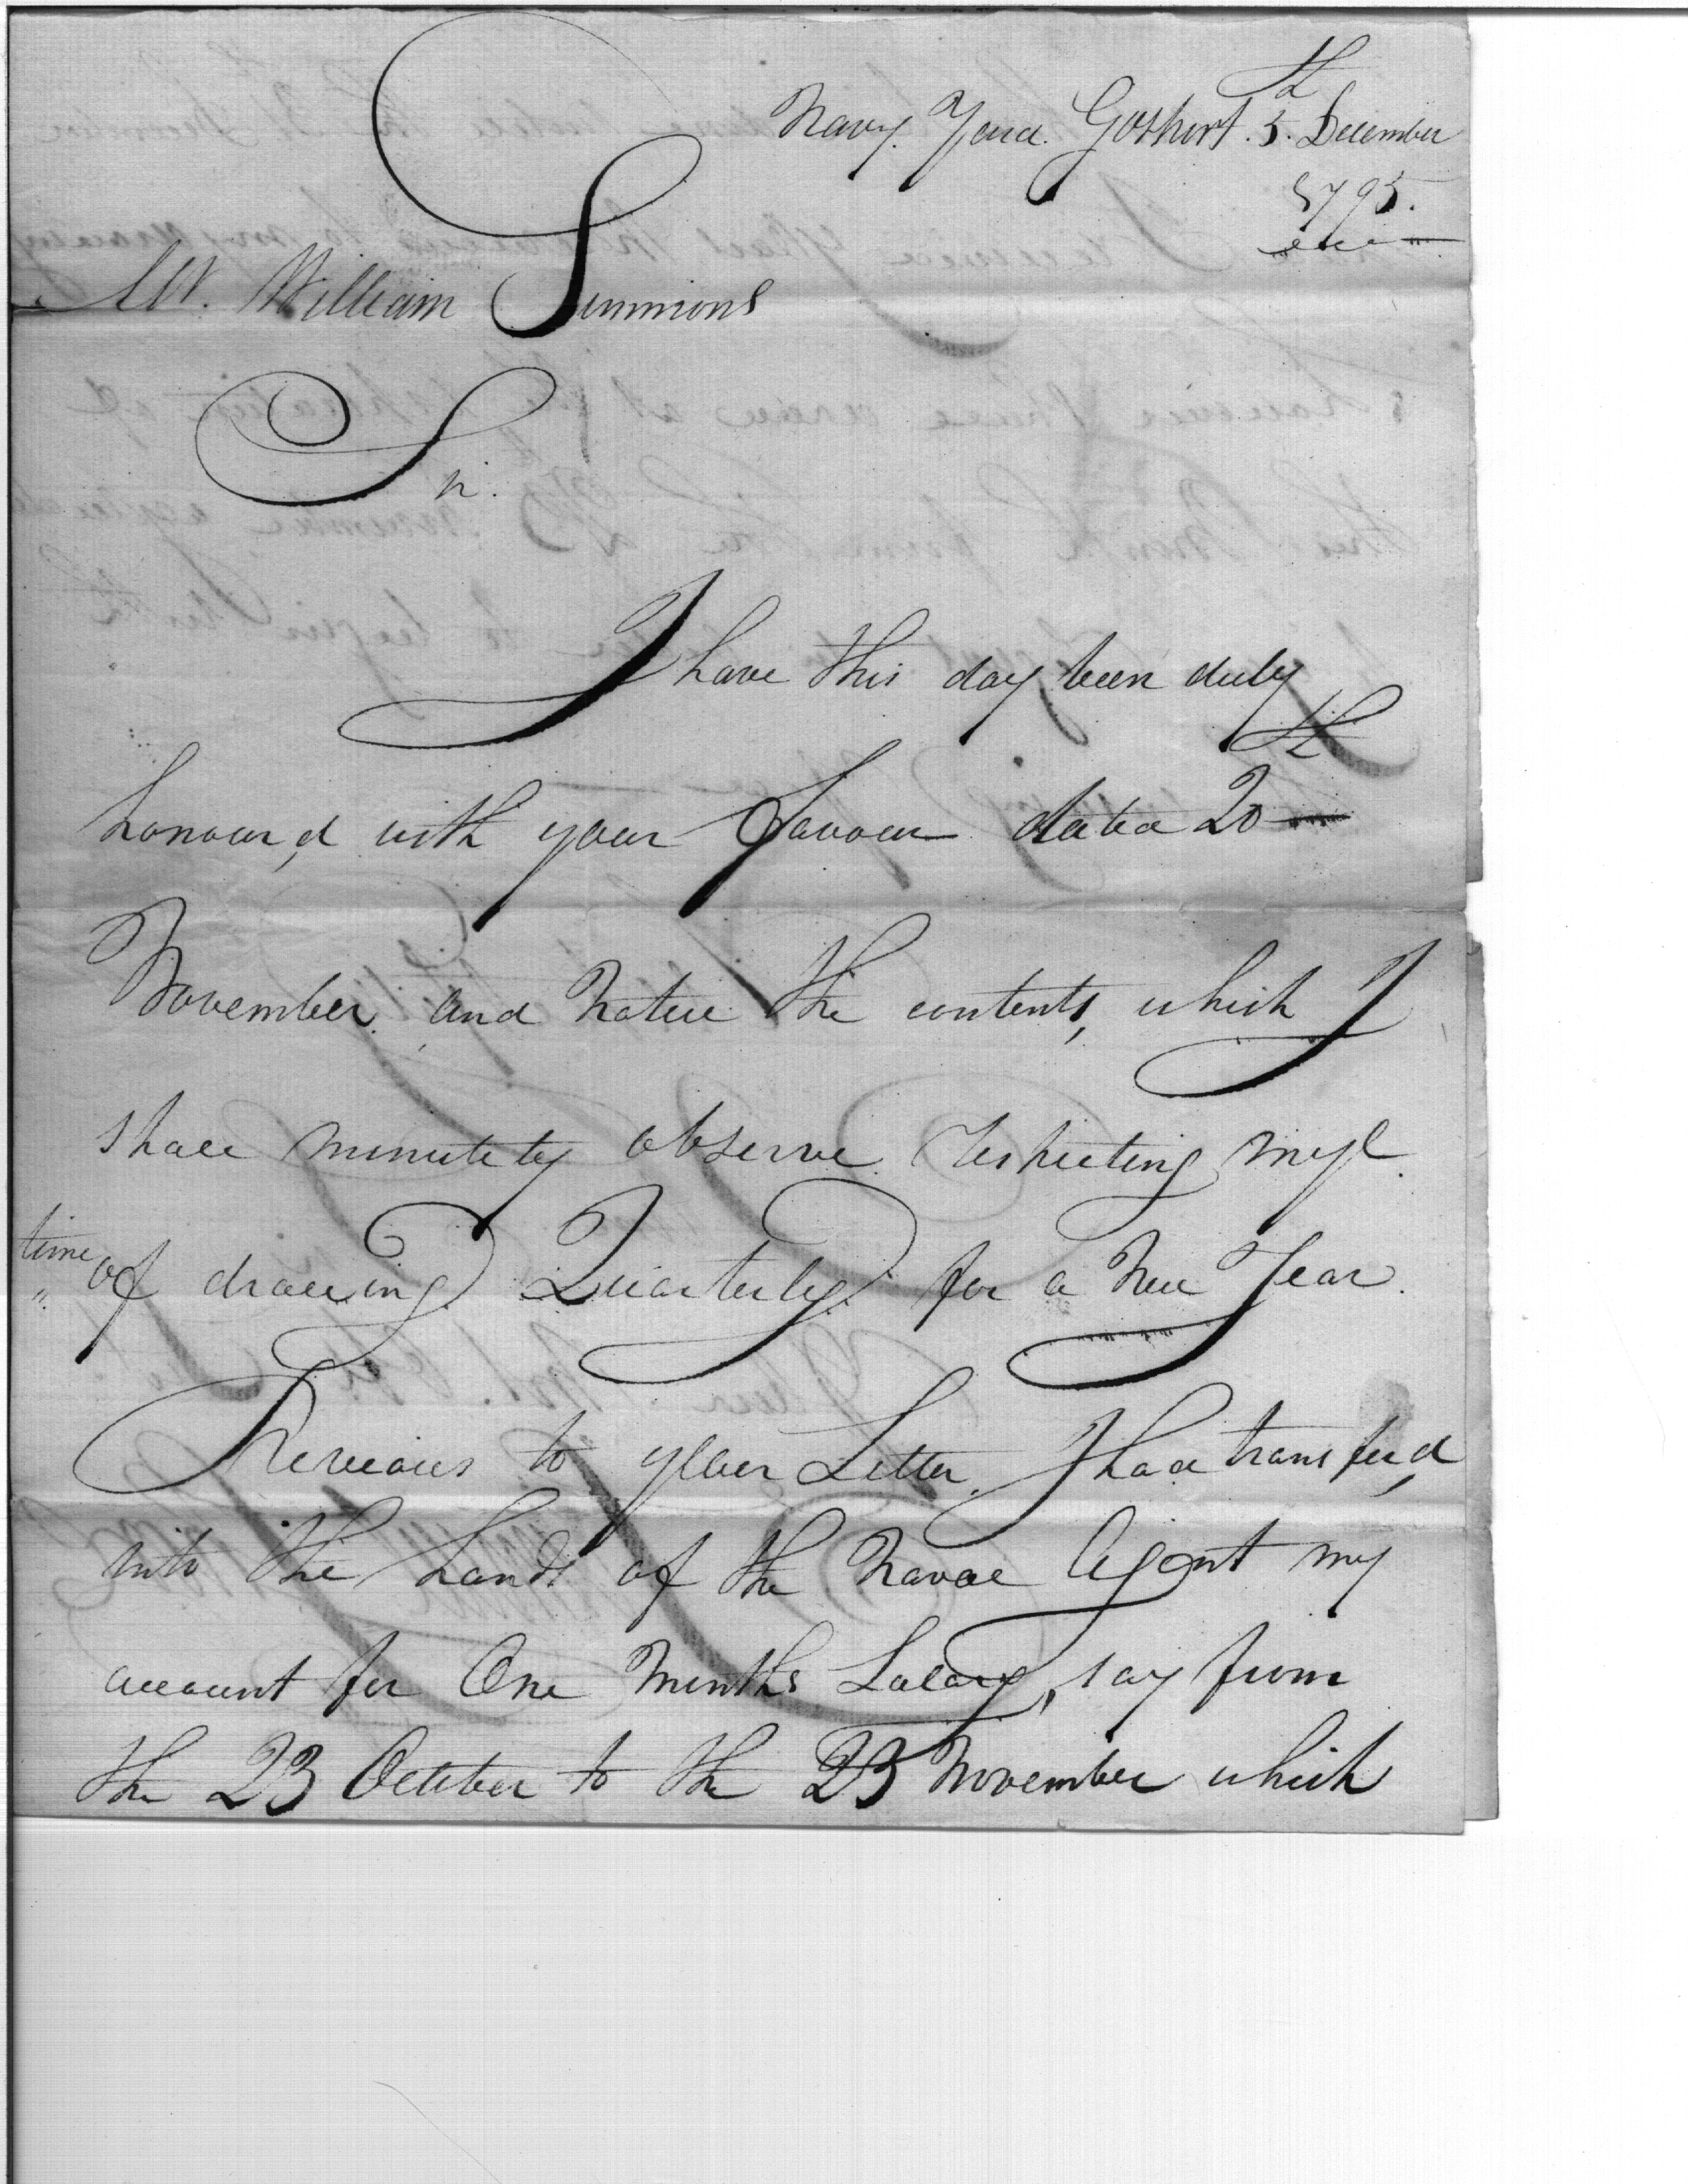 Navy. Yard. Gosport. 5.th December
1795.
Mr. William Simmons
Sir.
I have this day been duly
honour,d with your favour dated 20th
November. and Notice the contents, which I
shall minutely observe. respecting my
time of drawing Quarterly. for a New Year.
Previous to your Letter. I had transfer,d
into the hands of the Naval Agent my
account for One Months Salary, say from
the 23 October to the 23 November which